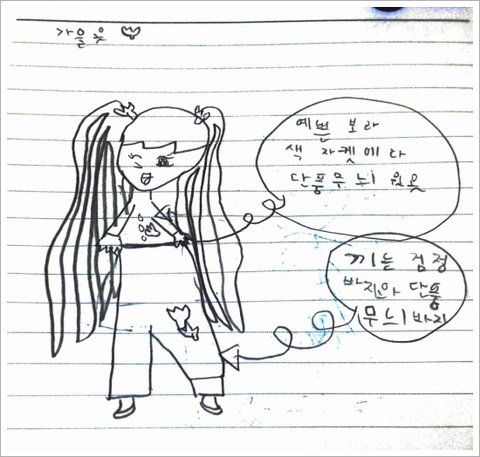 가을 옷
예쁜 보라
색 자켓에다
단풍무늬 윗옷
끼는 검정
바지와 단풍
무늬 바지